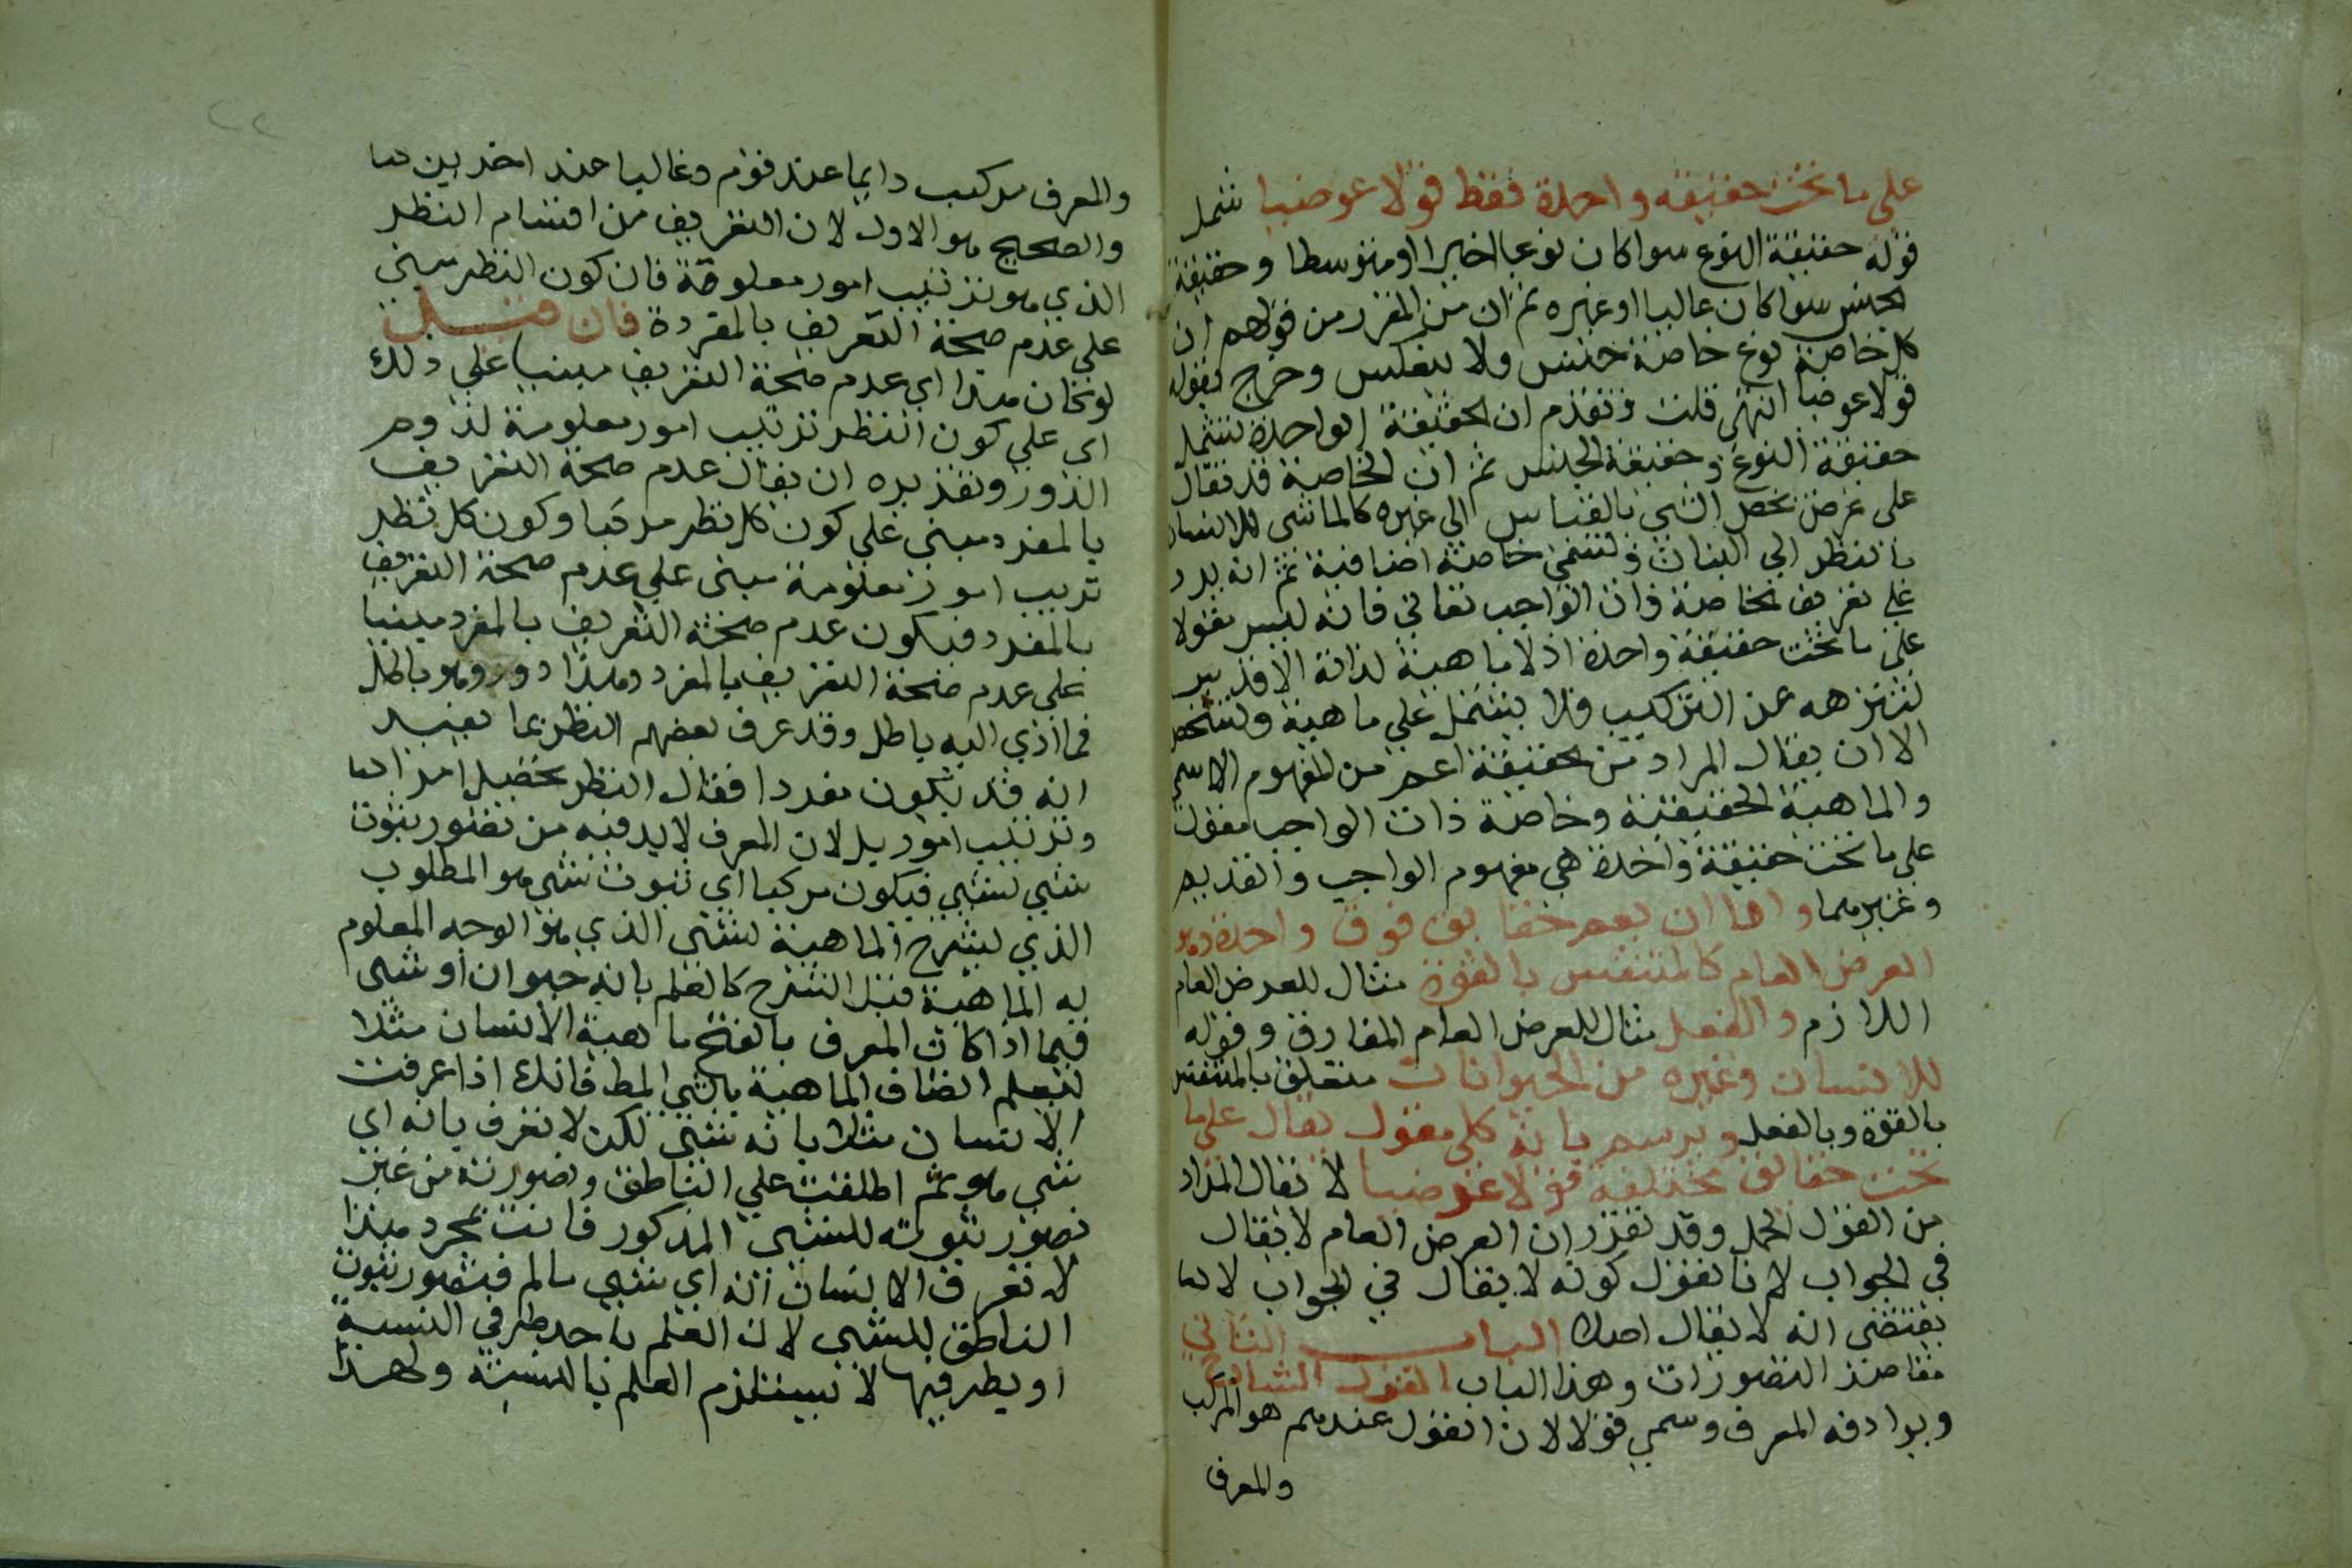 على ما تحت حقيقة واحدة فقط قولا عرضيا شمل
قوله حقيقة النوع سوا كان نوعا اخيرا او متوسطا وحقيقة
الجنس سوا كان عاليا او غيره ثم ان من المقرر من قولهم ان
كل خاصة نوع خاصة جنس ولا ينعكس وخرج بقوله
قولا عرضيا انتهى قلت وتقدم ان الحقيقة الواحدة تشمل
حقيقة النوع وحقيقة الجنس ثم ان الخاصة قد تقال
على عرض يخص الشي بالقياس الي غيره كالماشي للانسان
بالنظر الي النبات وتسمى خاصة اضافية ثم انه يرد
علي تعريف الخاصة ذات الواجب تعالى فانه ليس مقولا
على ما تحت حقيقة واحدة اذ لا ماهية لذاته الاقدس
لتنزهه عن التركيب فلا يشتمل علي ماهية وتشخص
الا ان يقال المراد من الحقيقة اعم من المفهوم الاسمي
والماهية الحقيقية وخاصة ذات الواجب مقول
على ما تحت حقيقة واحدة هي مفهوم الواجب والقديم
وغيرهما واما ان يعم حقايق فوق واحدة وهو
العرض العام كالمتنفس بالقوة مثال للعرض العام
اللازم والفعل مثال للعرض العام المفارق وقوله
للانسان وغيره من الحيوانات متعلق بالمتنفس
بالقوة وبالفعل ويرسم بانه كلي مقول يقال على ما
تحت حقايق مختلفة قولا عرضيا لا يقال المراد
من القول الحمل وقد تقرر ان العرض العام لا يقال
في الجواب لانا نقول كونه لا يقال في الجواب لا
يقتضي انه لا يقال اصلا الباب الثاني
مقاصد التصورات وهذا الباب القول الشارح
ويرادفه المعرف وسمي قولا لان القول عندهم هو المركب
والمعرف
والمعرف مركب دايما عند قوم وغالبا عند اخرين
والصحيح هو الاول لان التعريف من اقسام النظر
الذي هو ترتيب امور معلومة فان كون النظر مبني
على عدم صحة التعريف بالمفردة فان قيل
لو كان هذا اي عدم صحة التعريف مبنيا علي ذلك
اي علي كون النظر ترتيب امور معلومة لزم
الدور وتقديره ان يقال عدم صحة التعريف
بالمفرد مبني علي كون كل نظر مركبا وكون كل نظر
ترتيب امور معلومة مبنى علي عدم صحة التعريف
بالمفرد فيكون عدم صحة التعريف بالمفرد مبنيا
على عدم صحة التعريف بالمفرد وهذا دور وهو باطل
فما ادي اليه باطل وقد عرف بعضهم النظر بما يفيد
انه قد يكون مفردا فقال النظر تحصيل امر
وترتيب امور بل لان المعرف لا بد فيه من تصور ثبوت
شي لشي فيكون مركبا اي ثبوت شي هو المطلوب
الذي ليشرح الماهية لشي الذي هو الوجه المعلوم
به الماهية قبل الشرح كالعلم بانه حيوان او شى
فيما اذا كان المعرف بالفتح ماهية الانسان مثلا
لتعلم اتصاف الماهية بالشي المط فانك اذا عرفت
الانسان مثلا بانه شي لكن لا تعرف بانه اي
شي هو ثم اطلعت علي الناطق وتصورته من غير
تصور ثبوته للشي المذكور فانت بمجرد هذا
لا تعرف الانسان انه اي شي ما لم تتصور ثبوت
الناطق للشي لان العلم باحد طرفي النسبة
او بطرفيها لا يستلزم العلم بالنسبة ولهذا